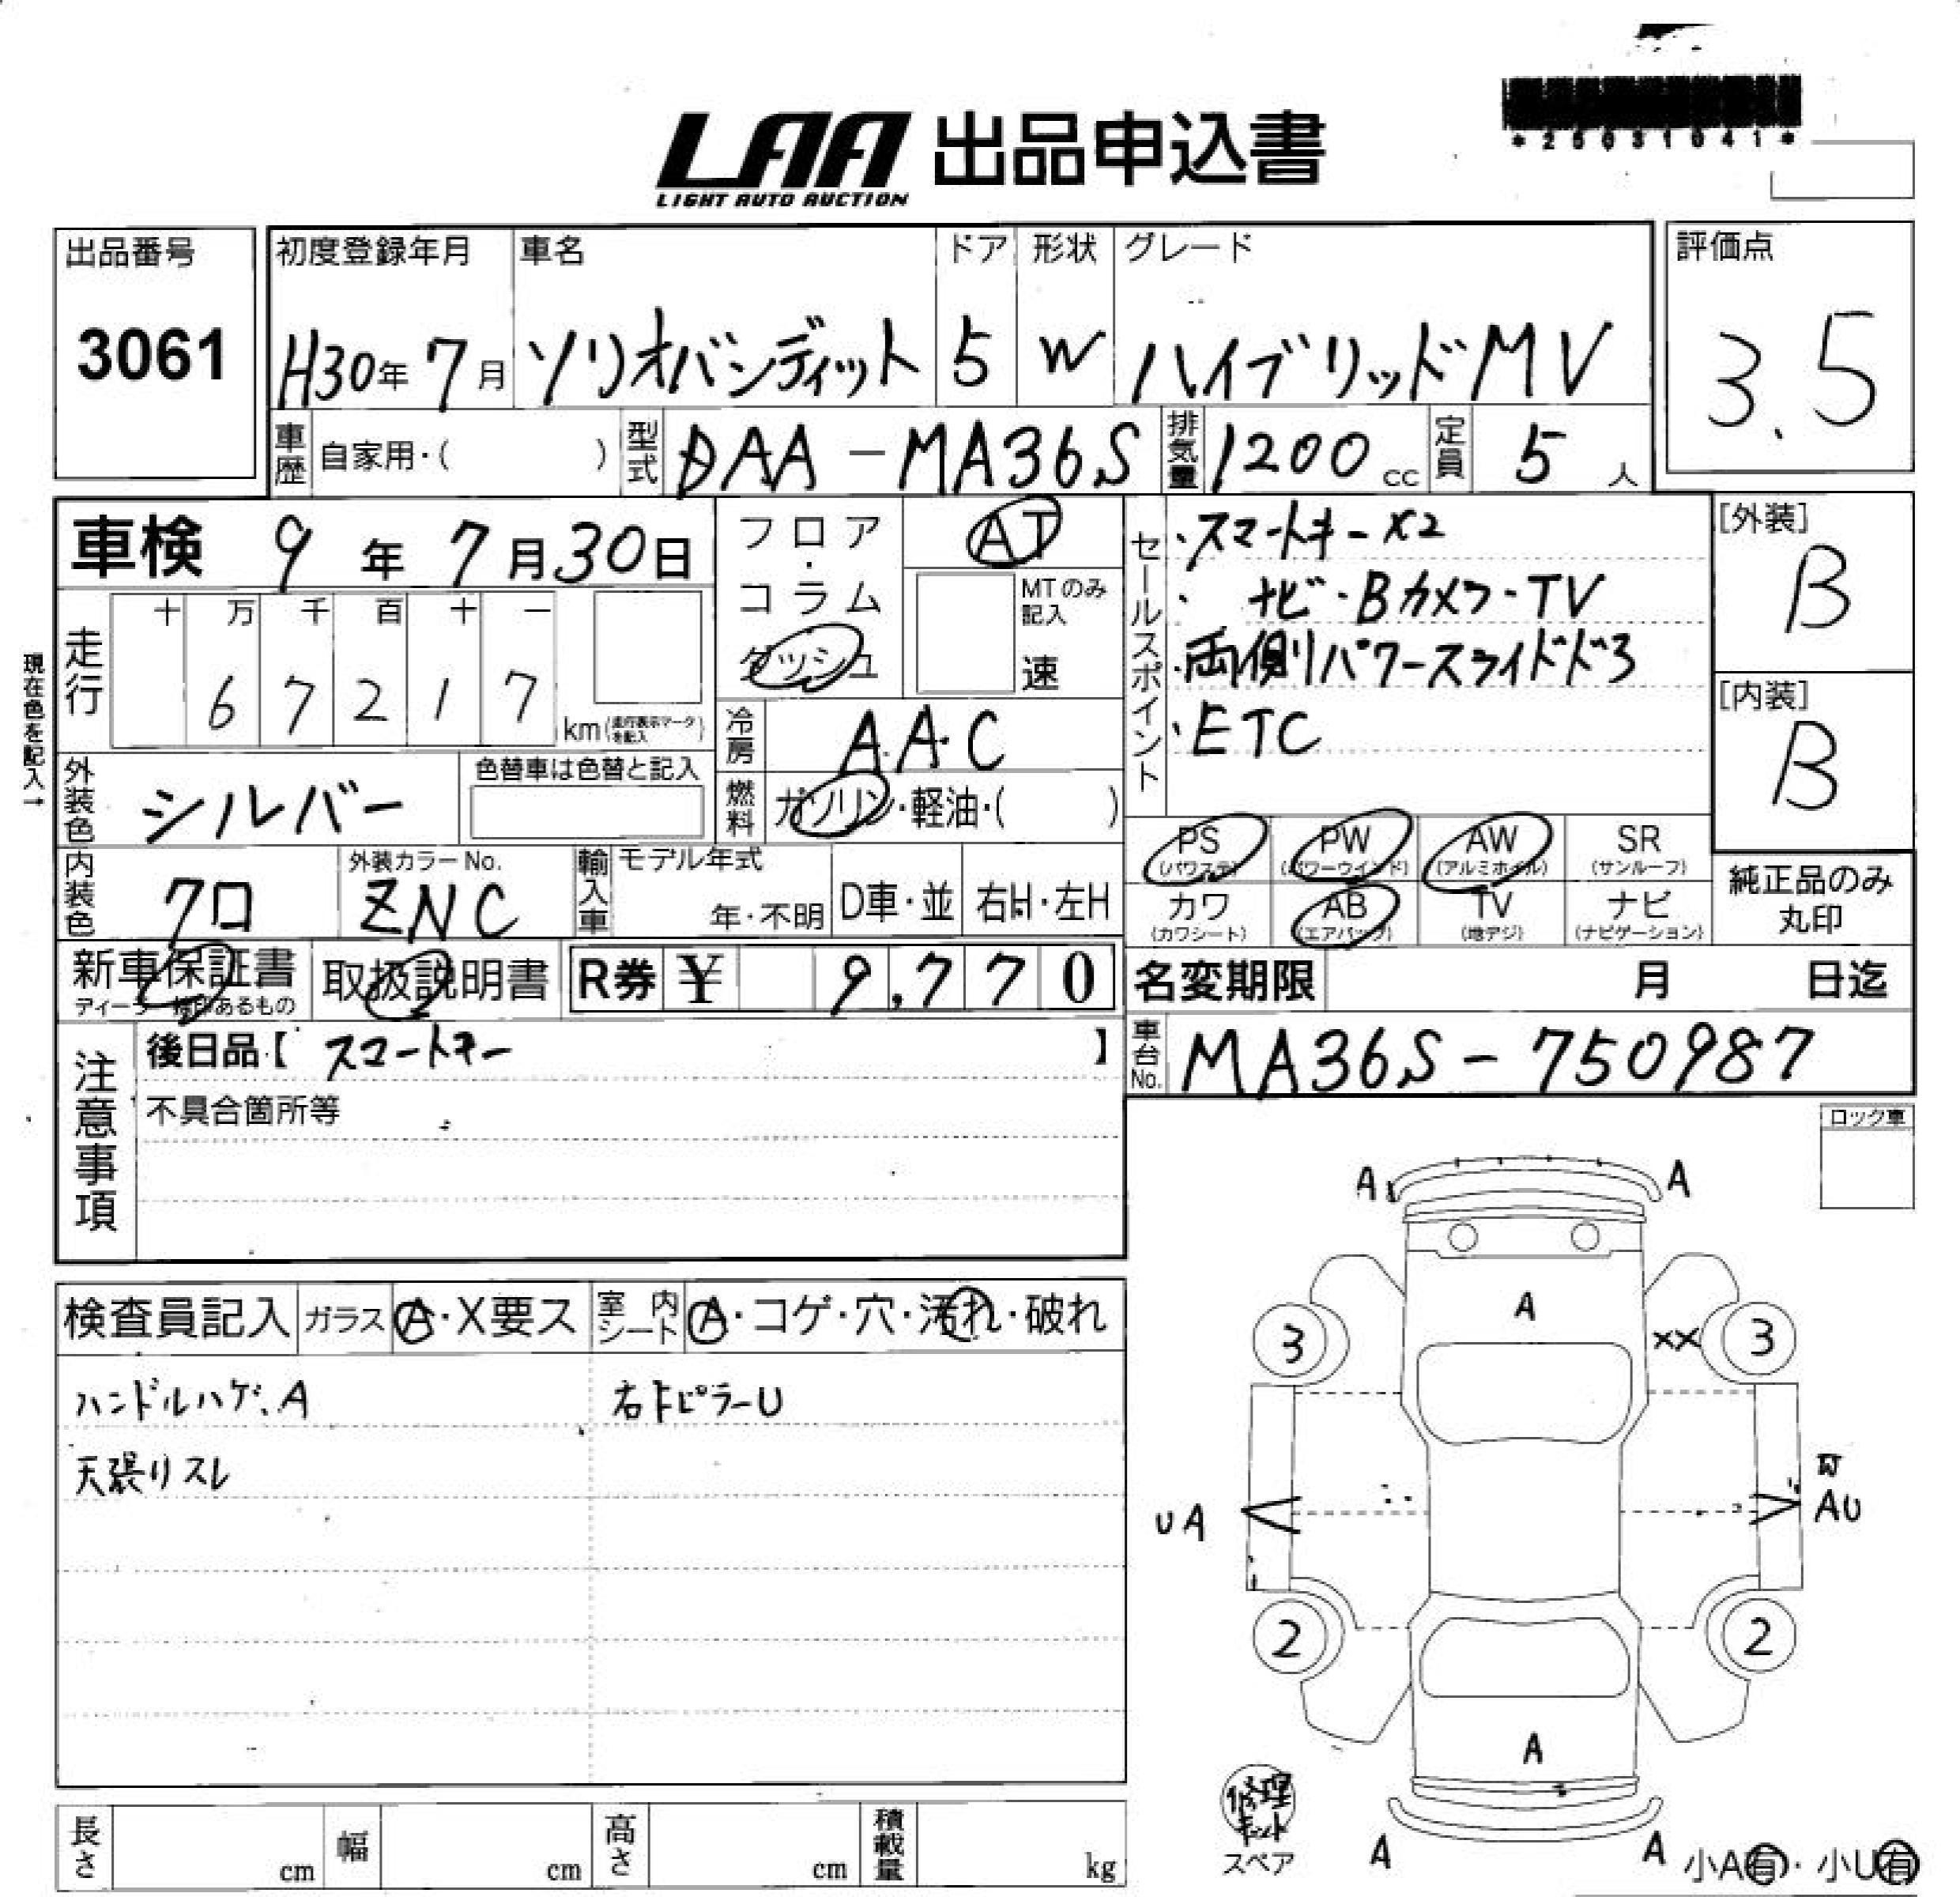 *25031041*
LAA 出品申込書
LIGHT AUTO AUCTION
出品番号
3061
初度登録年月
H30年 7月
車名
ソリオバンディット
ドア
5
形状
W
グレード
ハイブリッドMV
評価点
3.5
車歴 自家用・( )
型式 DAA-MA36S
排気量 1200 cc
定員 5 人
車検 9年 7月30日
フロア・コラム
ダッシュ
AT
MTのみ記入
速
セールスポイント
・スマートキーX2
・ナビ・Bカメラ・TV
・両側パワースライドドア
・ETC
[外装]
B
[内装]
B
現在色を記入→
走行
十 万 千 百 十 一
6 7 2 1 7
km(走行表示マークを記入)
冷房 AAC
燃料 ガソリン・軽油・( )
外装色 シルバー
色替車は色替と記入
内装色 クロ
外装カラーNo.
ZNC
輸入車
モデル年式
年・不明
D車・並
右H・左H
PS (パワステ)
PW (パワーウインド)
AW (アルミホイル)
SR (サンルーフ)
カワ (カワシート)
AB (エアバッグ)
TV (地デジ)
ナビ (ナビゲーション)
純正品のみ
丸印
新車保証書
取扱説明書
R券 ¥ 9,770
名変期限 月 日迄
車台No. MA36S-750987
注意事項
後日品【 スマートキー 】
不具合箇所等
ロック車
検査員記入
ガラス A・X要ス
室内シート A・コゲ・穴・汚れ・破れ
ハンドルハゲ、A
右Fピラー U
天張りスレ
A A
A
3 XX 3
UA AU
2 2
A
修理キット
スペア
A A
小A有・小U有
長さ cm
幅 cm
高さ cm
積載量 kg